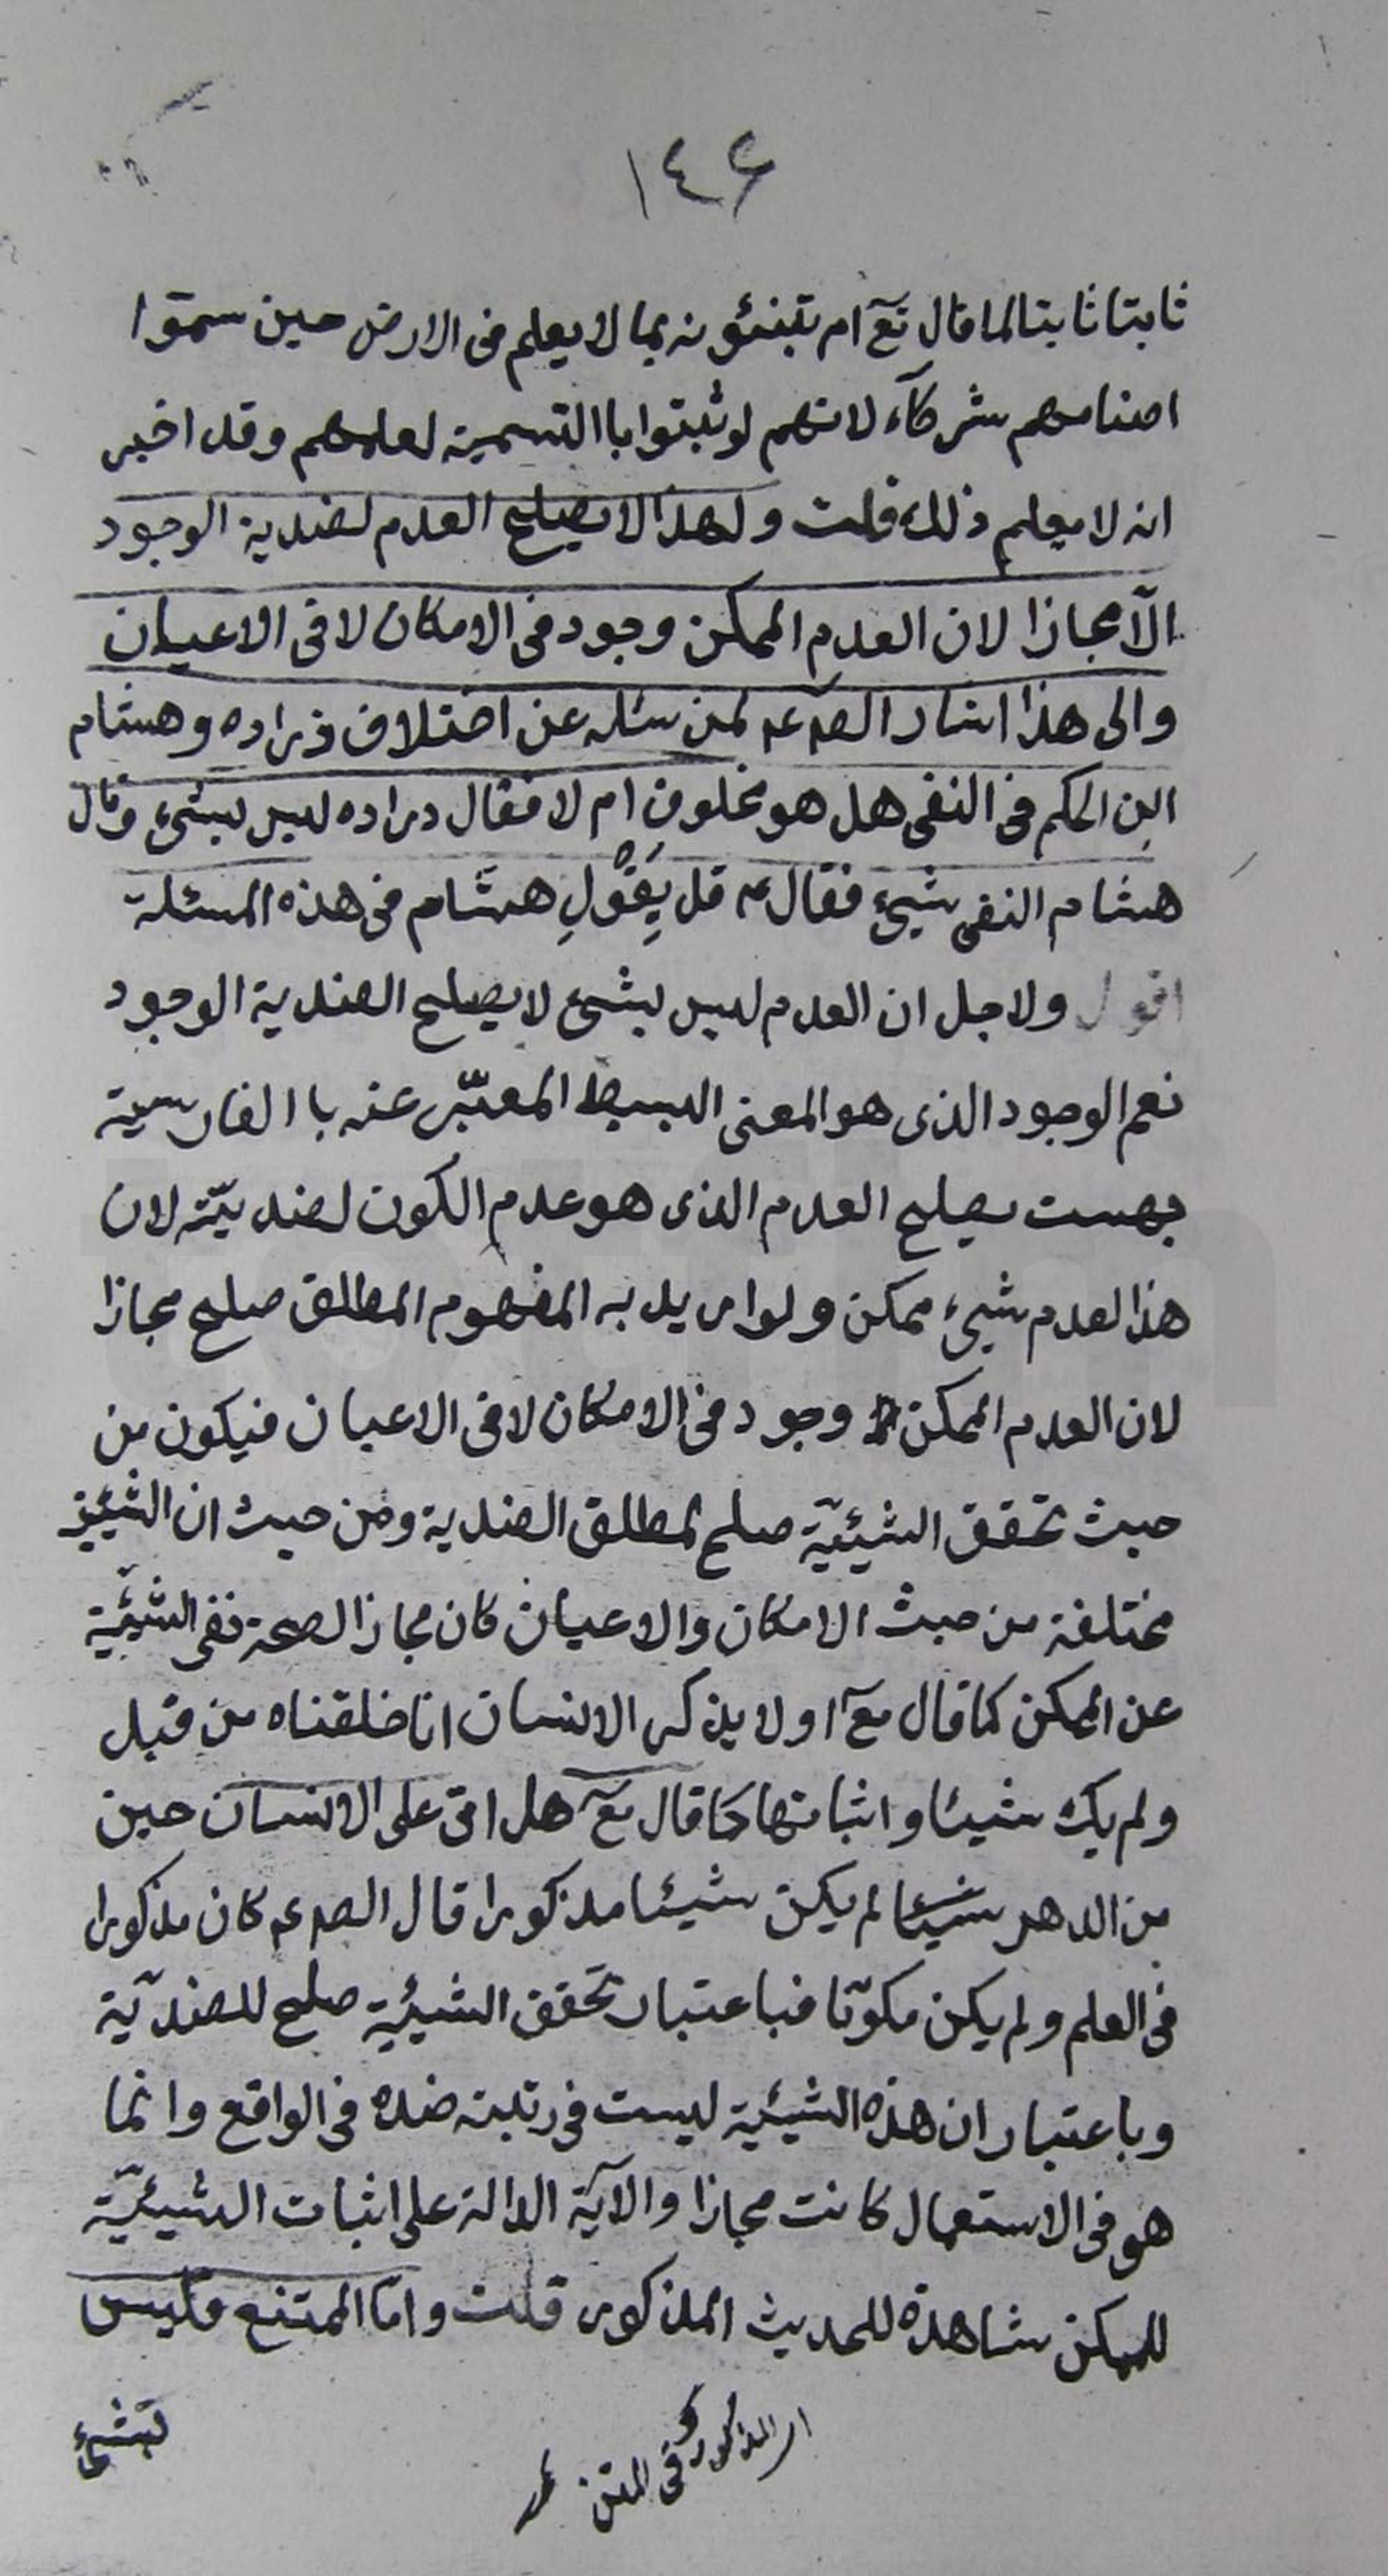 ١٤٦
ثابتا ثابتا لما قال تع ام تنبئونه بما لا يعلم فى الارض حين سموا
اصنامهم شركآء لانهم لو ثبتوا باالتسمية لعلمهم وقد اخبر
انه لا يعلم ذلك قلت ولهذا لا يصلح العدم لضدية الوجود
الّا مجازا لان العدم الممكن وجود فى الامكان لا فى الاعيان
والى هذا اشار الصم عم لمن سئله عن اختلاف زراره وهشام
ابن الحكم فى النفى هل هو مخلوق ام لا فقال زراره ليس بشىء وقال
هشام النفى شىء فقال ع قل بقول هشام فى هذه المسئلة
اقول ولاجل ان العدم ليس بشىء لا يصلح الضدية الوجود
نعم الوجود الذى هو المعنى البسيط المعبّر عنه با الفارسية
بهست يصلح العدم الذى هو عدم الكون لضديّته لان
هذا لعدم شىء ممكن ولو اريد به المفهوم المطلق صلح مجازا
لان العدم الممكن وجود فى الامكان لا فى الاعيان فيكون من
حيث تحقق الشيئيّة صلح لمطلق الضدية ومن حيث ان الشيئية
مختلفة من حيث الامكان والاعيان كان مجازا لصحة نفى الشيئيّة
عن الممكن كما قال تع اولا يذكر الانسان انا خلقناه من قبل
ولم يك شيئا واثباتها كما قال تع هل اتى على الانسان حين
من الدهر شيئا لم يكن شيئا مذكورا قال الصم عم كان مذكورا
فى العلم ولم يكن مكوّنا فباعتبار تحقق الشيئية صلح للضديّة
وباعتبار ان هذه الشيئية ليست فى رتبته ضده فى الواقع وانما
هو فى الاستعمال كانت مجازا والآية الدالة على اثبات الشيئيّة
للممكن شاهدة للحديث المذكور قلت وامّا الممتنع فليس
بشىء
المذكور فى المتن